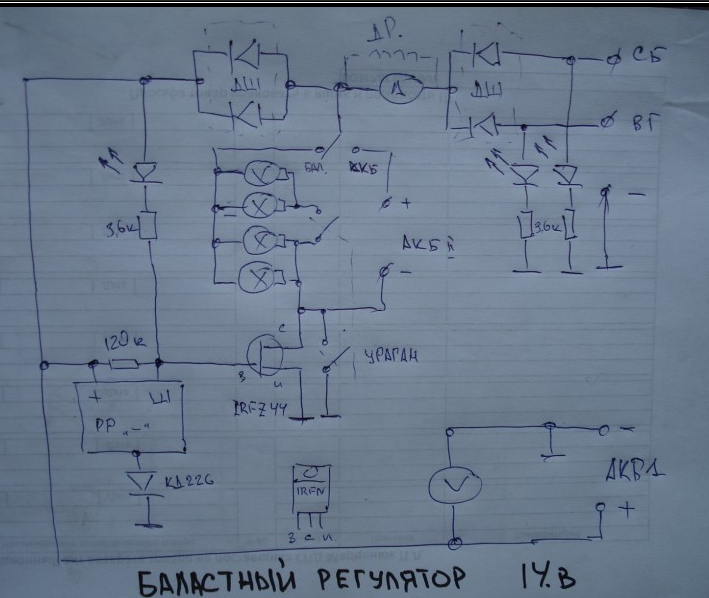 ДР.
СБ
ДШ
ДШ
А
ВГ
БАЛ.
АКБ
V
X
X
X
+
−
3,6к
3,6к
АКБ II
−
120к
С
УРАГАН
З
И
IRFZ44
+ Ш
РР „−"
КД226
IRFN
З С И.
V
−
АКБ1
+
БАЛАСТНЫЙ РЕГУЛЯТОР 14.В